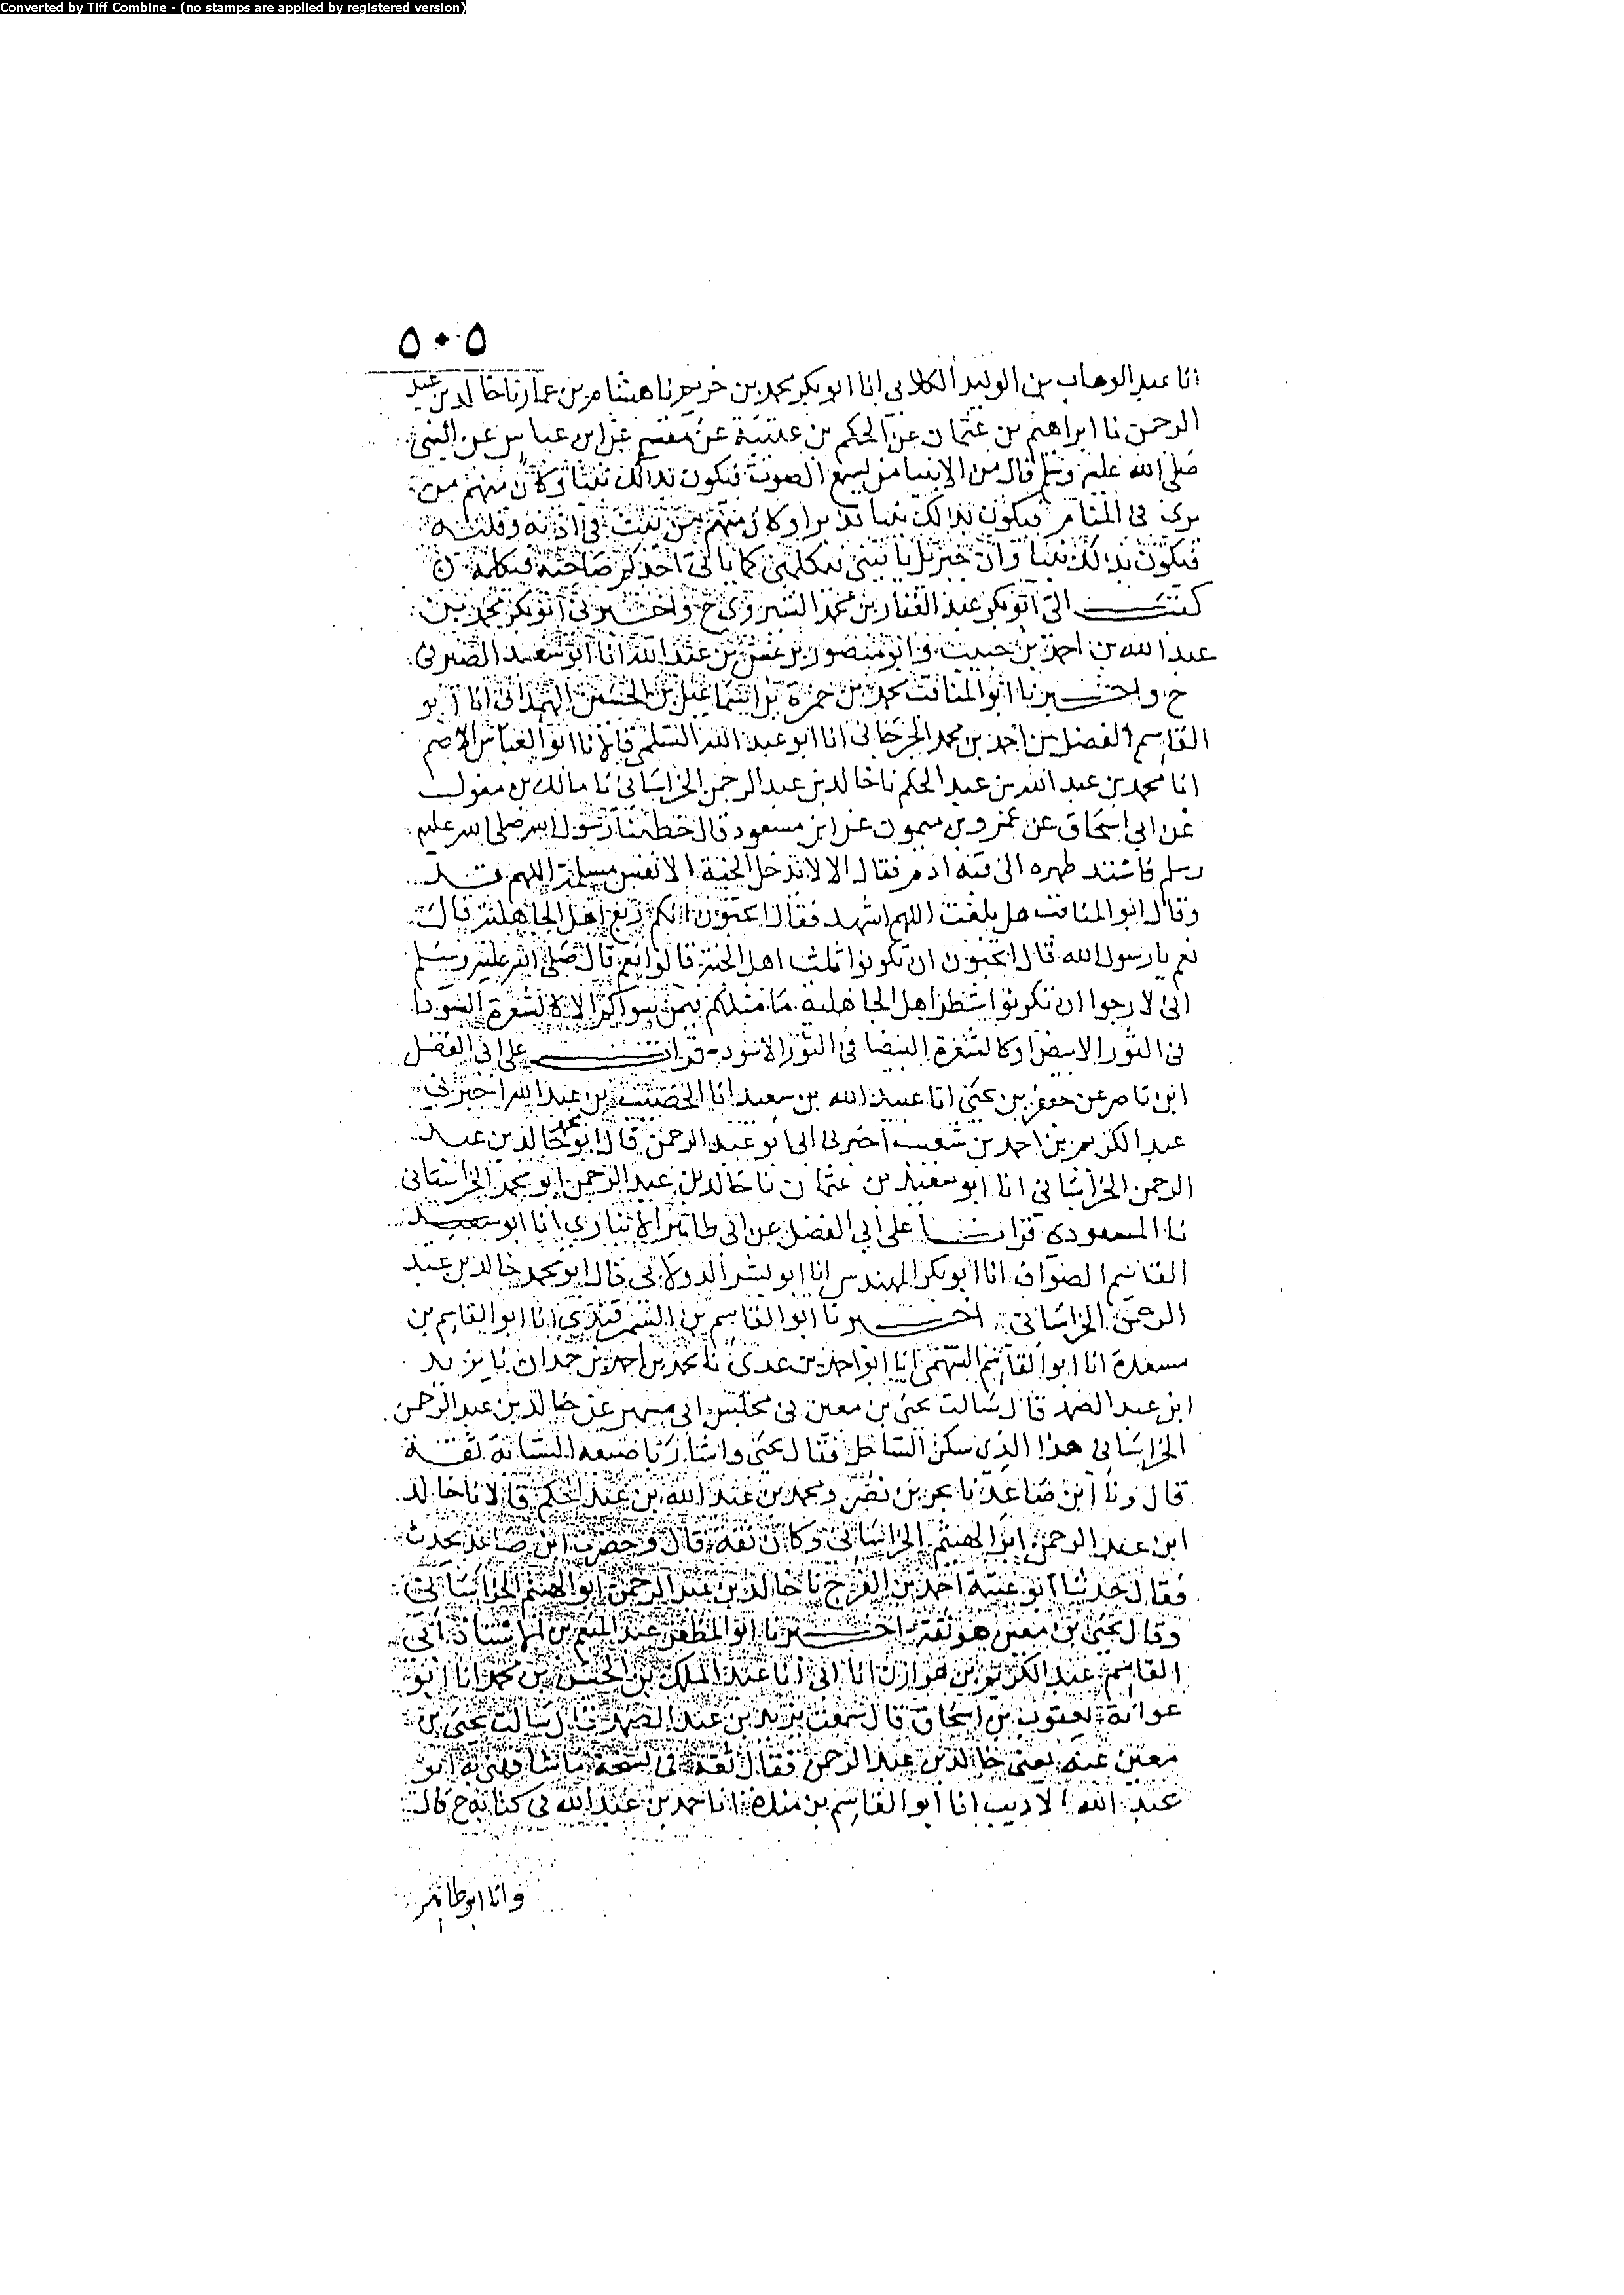 Converted by Tiff Combine - (no stamps are applied by registered version)
٥٠٥
انا عبد الوهاب بن الوليد الكلابي انا ابو بكر محمد بن خريم نا هشام بن عمار نا خالد بن عبد
الرحمن نا ابراهيم بن عثمان عن الحكم بن عتيبة عن مقسم عن ابن عباس عن النبي
صلى الله عليه وسلم قال من الانبيا من يسمع الصوت فيكون بذالك نبيا وكان منهم من
يرى في المنام فيكون بذالك نبيا وكان منهم من ينفث في اذنه وقلبه
فيكون بذالك نبيا وان جبريل ياتيني فيكلمني كما ياتي احدكم صاحبه فيكلمه
كتب الي ابو بكر عبد الغفار بن محمد الشيروي ح واخبرني ابو بكر محمد بن
عبد الله بن احمد بن حبيب وابو منصور بن عبد الله انا ابو سعيد الصيرفي
ح واخبرنا ابو المناقب محمد بن حمزة بن اسماعيل بن الحسن الهمداني انا ابو
القاسم الفضل بن احمد بن محمد الجرجاني انا ابو عبد الله السلمي قالا نا ابو العباس الاصم
انا محمد بن عبد الله بن عبد الحكم نا خالد بن عبد الرحمن الخراساني نا مالك بن مغول
عن ابي اسحاق عن عمرو بن ميمون عن ابن مسعود قال خطبنا رسول الله صلى الله عليه
وسلم فاسند ظهره الى قبة ادم فقال الا لا تدخل الجنة الا نفس مسلمة اللهم
وقال ابو المناقب هل بلغت اللهم اشهد فقال اتحبون انكم ربع اهل الجاهلية قال
نعم يا رسول الله قال اتحبون ان تكونوا ثلث اهل الجنة قالوا نعم قال صلى الله عليه وسلم
اني لارجوا ان تكونوا شطر اهل الجاهلية ما مثلكم فيمن سواكم الا كالشعرة السودا
في الثور الابيض او كالشعرة البيضا في الثور الاسود قرات على ابي الفضل
ابن ناصر عن جعفر بن يحيى انا عبيد الله بن سعيد انا الخصيب بن عبد الله اخبرني
عبد الكريم بن احمد بن شعيب اخبرني ابي ابو عبد الرحمن قال ابو محمد خالد بن عبد
الرحمن الخراساني انا ابو سعيد بن عثمان نا خالد بن عبد الرحمن ابو محمد الخراساني
نا المسعودي قرانا على ابي الفضل عن ابي طاهر الانباري انا ابو
القاسم الصواف انا ابو بكر المهندس انا ابو بشر الدولابي قال ابو محمد خالد بن عبد
الرحمن الخراساني اخبرنا ابو القاسم بن السمرقندي انا ابو القاسم بن
مسعدة انا ابو القاسم السهمي انا ابو احمد بن عدي نا محمد بن احمد بن حمدان نا يزيد
ابن عبد الصمد قال سالت يحيى بن معين في مجلس ابي مسهر عن خالد بن عبد الرحمن
الخراساني هذا الذي سكن الساحل فقال يحيى واشار باصبعه السبابة ثقة
قال ونا ابن صاعد نا بحر بن نصر ومحمد بن عبد الله بن عبد الحكم قالا نا خالد
ابن عبد الرحمن ابو الهيثم الخراساني وكان ثقة قال وحضرت ابن صاعد يحدث
فقال حدثنا ابو عتبة احمد بن الفرج نا خالد بن عبد الرحمن ابو الهيثم الخراساني
وقال يحيى بن معين هو ثقة اخبرنا ابو المظفر عبد المنعم بن الاستاذ ابي
القاسم عبد الكريم بن هوازن انا ابي انا عبد الملك بن الحسن بن محمد انا ابو
عوانة يعقوب بن اسحاق قال سمعت يزيد بن عبد الصمد قال سالت يحيى بن
معين عنه يعني خالد بن عبد الرحمن فقال ثقة ابو
عبد الله الاديب انا ابو القاسم بن مندة انا حمد بن عبد الله في كتابه ح قال
وانا ابو طاهر